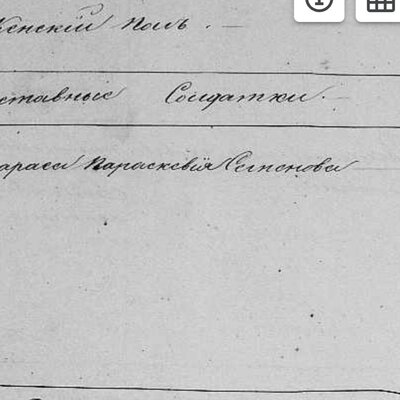 Женскій полъ.
ставные Солдатки.
Тараса Параскевія Степанова